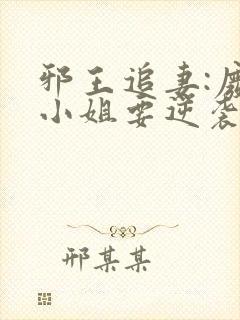 邪王追妻:废
小姐要逆袭
邢某某